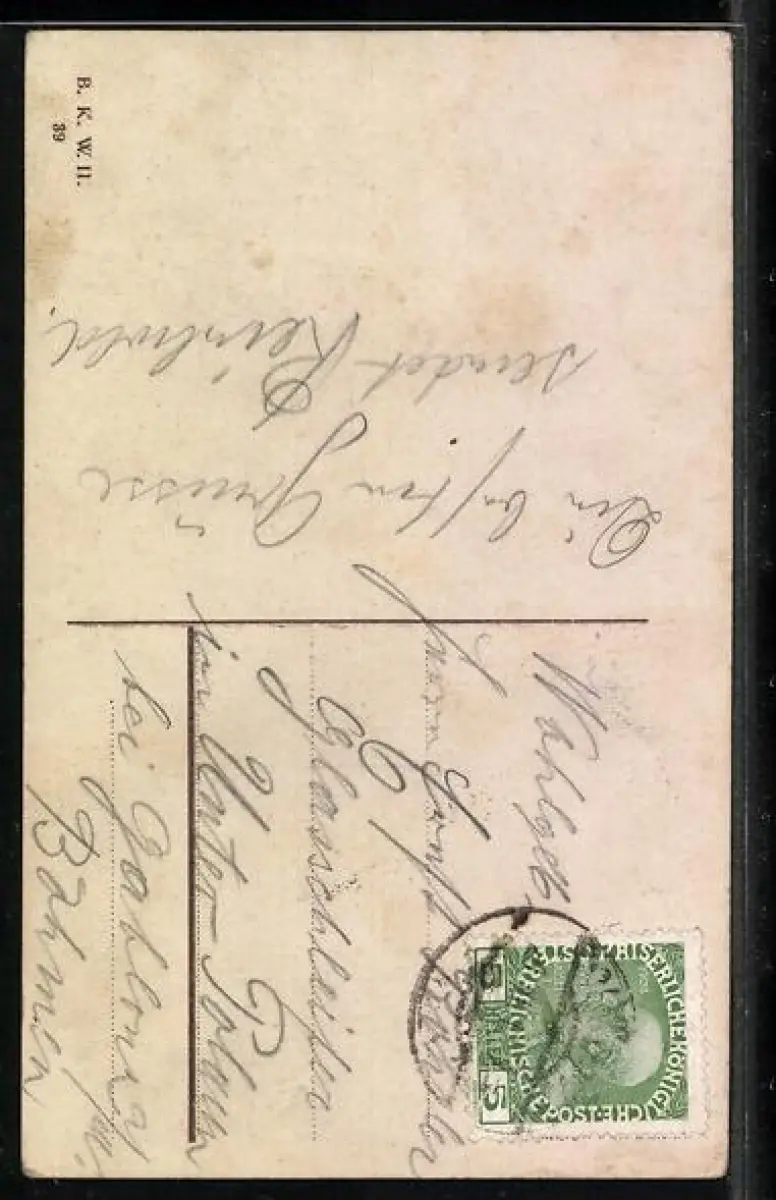 B. K. W. II.
89
Die besten Grüsse
sendet Reinhold.
Wohlgeb.
Herrn
Glasschleifer
in Unter-Polaun
bei Gablonz
Böhmen
KAISERLICHE KÖNIGLICHE
ÖSTERREICHISCHE POST
5 HELLER 5